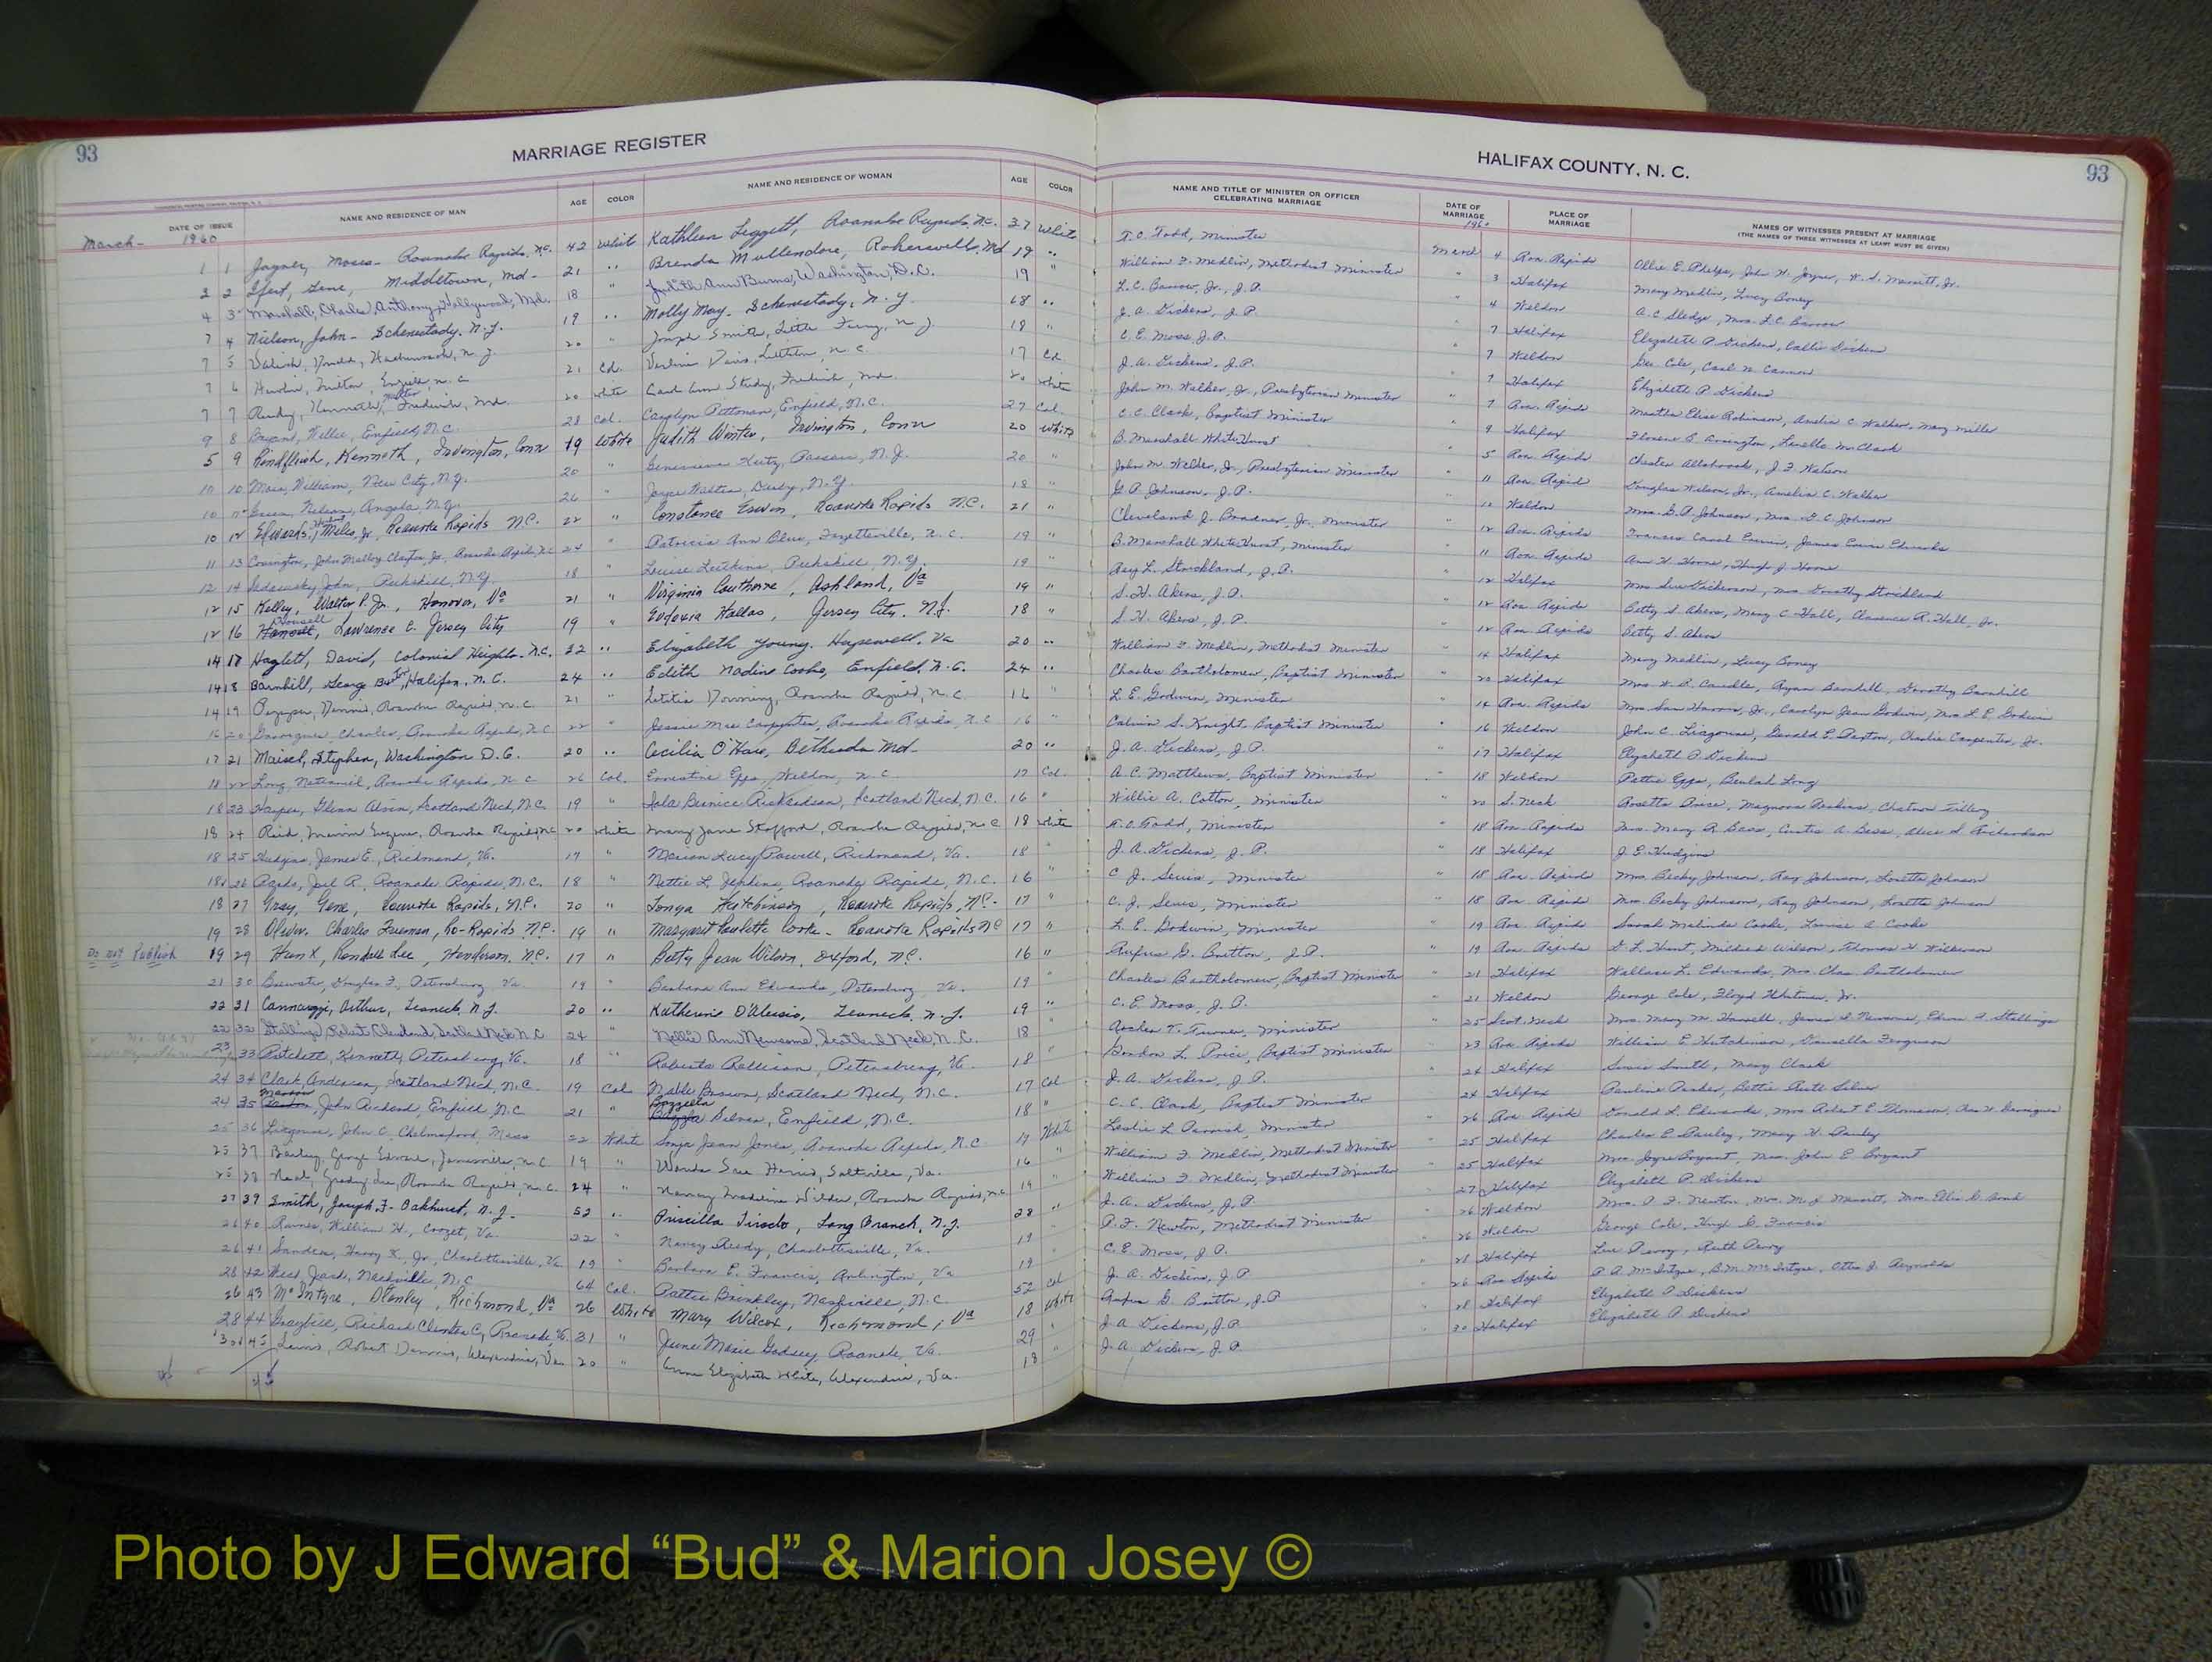 93
MARRIAGE REGISTER
HALIFAX COUNTY, N. C.
93
DATE OF ISSUE
NAME AND RESIDENCE OF MAN
AGE
COLOR
NAME AND RESIDENCE OF WOMAN
AGE
COLOR
NAME AND TITLE OF MINISTER OR OFFICER
CELEBRATING MARRIAGE
DATE OF
MARRIAGE
PLACE OF
MARRIAGE
NAMES OF WITNESSES PRESENT AT MARRIAGE
(THE NAMES OF THREE WITNESSES AT LEAST MUST BE GIVEN)
March- 1960
1960
1 1 Joyner, Moses- Roanoke Rapids, N.C. 42 White Kathleen Leggett, Roanoke Rapids, N.C. 37 White T.O. Todd, Minister March 4 Roa. Rapids Ollie E. Phelps, John H. Joyner
2 2 Gene, Middletown, Md- 21 " Brenda Mullendore, Md 19 " William F. Medlin, Methodist Minister " 3 Halifax Mary Medlin, Lucy Boney
4 3 Marshall, Charles Anthony, Hollywood, Md. 18 " Judith Ann Burns, Washington, D.C. 19 " L.C. Barrow, Jr., J.P. " 4 Weldon A.C. Sledge, Mrs. L.C. Barrow
7 4 Nielson, John- Schenectady, N.Y. 19 " Molly May- Schenectady, N.Y. 18 " J.A. Dickens, J.P. " 7 Halifax Elizabeth P. Dickens, Callie Dickens
7 5 20 " 18 " C.E. Moss, J.P. 7 Weldon Geo. Cole, Carl W. Cannon
7 6 Enfield, N.C. 21 Col. Davis, Littleton, N.C. 17 Col. J.A. Dickens, J.P. " 7 Halifax Elizabeth P. Dickens
7 7 Kenneth Walter, Frederick, Md. 20 White Carol Ann Frederick, Md. 20 White John M. Walker, Jr., Presbyterian Minister " 7 Roa. Rapids Martha Elise Robinson, Amelia C. Walker, Mary Miller
9 8 Bryant, Willie, Enfield, N.C. 28 Col. Carolyn Pittman, Enfield, N.C. 27 Col. C.C. Clark, Baptist Minister " 9 Halifax
5 9 Rindfleish, Kenneth, Irvington, Conn 19 White Judith Winter, Irvington, Conn 20 White B. Marshall White Hurst " 5 Roa. Rapids Chester Allsbrook, J.F. Watson
10 10 William, New City, N.Y. 20 " Genevieve 20 " John M. Walker, Jr., Presbyterian Minister " 11 Roa. Rapids Douglas Wilson, Jr., Amelia C. Walker
10 11 Green, Nelson, Angola, N.Y. 26 " Joyce Walter, Derby, N.Y. 18 " G.P. Johnson, J.P. " 10 Weldon Mrs. G.P. Johnson, Mrs. D.C. Johnson
10 12 Edwards, Miles, Jr., Roanoke Rapids N.C. 22 " Constance Erwin, Roanoke Rapids N.C. 21 " Cleveland J. Bradner, Jr., Minister " 12 Roa. Rapids Frances Carol Erwin, James Edwards
11 13 Covington, John Malloy Clayton Jr., Roanoke Rapids, N.C. 24 " Patricia Ann Blue, Fayetteville, N.C. 19 " B. Marshall White Hurst, Minister " 11 Roa. Rapids Ann H. Horne, Hugh J. Horne
12 14 John, Peekskill, N.Y. 18 " Louise Peekskill, N.Y. 19 " Ray L. Strickland, J.P. 12 Halifax Mrs. Sue Dickerson, Mrs. Dorothy Strickland
12 15 Kelley, Walter P. Jr., Hanover, Va 21 " Virginia Cawthorne, Ashland, Va 19 " S.H. Akers, J.P. " 12 Roa. Rapids Betty S. Akers, Mary C. Hall, Clarence R. Hall, Jr.
12 16 Lawrence E. Jersey City 19 " Eudoxia Hallas, Jersey City, N.J. 18 " S.H. Akers, J.P. " 12 Roa. Rapids Betty S. Akers
14 17 Hazlett, David, Colonial Heights, N.C. 22 " Elizabeth Young, Hopewell, Va 20 " William F. Medlin, Methodist Minister " 14 Halifax Mary Medlin, Lucy Boney
14 18 Barnhill, George Halifax, N.C. 24 " Edith Nadine Cooke, Enfield, N.C. 24 " Charles Bartholomew, Baptist Minister " 20 Halifax Ryan Barnhill, Dorothy Barnhill
14 19 Dennis, Roanoke Rapids, N.C. 21 " Letitia Downing, Roanoke Rapids, N.C. 16 " L.E. Godwin, Minister " 14 Roa. Rapids Mrs. Sam Harris, Jr., Carolyn Jean Godwin, Mrs. L.E. Godwin
16 20 Charles, Roanoke Rapids, N.C. 22 " Jessie Mae Carpenter, Roanoke Rapids, N.C. 16 " Calvin S. Knight, Baptist Minister " 16 Weldon John C. Ligouri, Gerald E. Paxton, Charlie Carpenter, Jr.
17 21 Maisel, Stephen, Washington D.C. 20 " Cecilia O'Hare, Bethesda Md- 20 " J.A. Dickens, J.P. " 17 Halifax Elizabeth P. Dickens
18 22 Long, Nathaniel, Roanoke Rapids, N.C. 26 Col. Ernestine Epps, Weldon, N.C. 17 Col. A.C. Matthews, Baptist Minister " 18 Weldon Pattie Epps, Beulah Long
18 23 Harper, Glenn Alvin, Scotland Neck, N.C. 19 " Iola Bernice Richardson, Scotland Neck, N.C. 16 " Willie A. Cotton, Minister " 20 S. Neck Rosetta Price, Magnora Perkins, Chatman Tillery
18 24 Reid, Marvin Eugene, Roanoke Rapids, N.C. 20 White Mary Jane Stafford, Roanoke Rapids, N.C. 18 White T.O. Todd, Minister " 18 Roa. Rapids Mrs. Mary R. Bess, Curtis A. Bess, Alice S. Richardson
18 25 Hudgins, James E., Richmond, Va. 17 " Marian Lucy Powell, Richmond, Va. 18 " J.A. Dickens, J.P. " 18 Halifax J.E. Hudgins
18 26 Joel R., Roanoke Rapids, N.C. 18 " Nettie L. Jenkins, Roanoke Rapids, N.C. 16 " C.J. Sewis, Minister " 18 Roa. Rapids Mrs. Becky Johnson, Ray Johnson, Loretta Johnson
18 27 Gray, Gene, Roanoke Rapids, N.C. 20 " Tonya Hutchinson, Roanoke Rapids, N.C. 17 " C.J. Sewis, Minister " 18 Roa. Rapids Mrs. Becky Johnson, Ray Johnson, Loretta Johnson
19 28 Oliver, Charles Freeman, Ro-Rapids N.C. 19 " Margaret Paulette Cooke- Roanoke Rapids NC 17 " L.E. Godwin, Minister " 19 Roa. Rapids Sarah Melinda Cooke, Louise A. Cooke
Do not Publish 19 29 Hunt, Randall Lee, Henderson, N.C. 17 " Betty Jean Wilson, Oxford, N.C. 16 " Rufus G. Britton, J.P. " 19 Roa. Rapids D.L. Hunt, Mildred Wilson, Thomas H. Wilkerson
21 30 Brewster, Douglas F., Petersburg, Va. 19 " Barbara Ann Edwards, Petersburg, Va. 19 " Charles Bartholomew, Baptist Minister " 21 Halifax Wallace L. Edwards, Mrs. Chas. Bartholomew
22 31 Cannarzzi, Arthur, Teaneck, N.J. 20 " Katherine D'Alesio, Teaneck, N.J. 19 " C.E. Moss, J.P. " 21 Weldon George Cole, Floyd Whitman, Jr.
22 32 Stallings, Robert Cleveland, Scotland Neck N.C. 24 " Nellie Ann Newsome, Scotland Neck, N.C. 18 " Archer T. Turner, Minister " 25 Scot. Neck Mrs. Mary M. Harrell, James S. Newsome, Edwin H. Stallings
23 33 Pritchett, Kenneth, Petersburg, Va. 18 " Roberta Rollison, Petersburg, Va. 18 " Gordon L. Price, Baptist Minister 23 Roa. Rapids William E. Hutchinson, Ferguson
24 34 Clark, Anderson, Scotland Neck, N.C. 19 Col Mable Brown, Scotland Neck, N.C. 17 Col J.A. Dickens, J.P. " 24 Halifax Susie Smith, Mary Clark
24 35 John Richard, Enfield, N.C. 21 " Silver, Enfield, N.C. 18 " C.C. Clark, Baptist Minister 24 Halifax Pauline Parker, Bettie Ruth Silver
25 36 Ligouri, John C., Chelmsford, Mass 22 White Sonja Jean Jones, Roanoke Rapids, N.C. 17 White Leslie L. Parrish, Minister " 26 Roa. Rapids Donald L. Edwards, Mrs. Robert E. Thomason
25 37 George Edward, Jamesville, N.C. 19 " Wanda Sue Harris, Saltville, Va. 16 " William F. Medlin, Methodist Minister 25 Halifax Charles E. Pauley, Mary V. Pauley
25 38 Neal, Grady Lee, Roanoke Rapids, N.C. 24 " Nancy Madeline Wilder, Roanoke Rapids, N.C. 19 William F. Medlin, Methodist Minister 25 Halifax Mrs. Joyce Bryant, Mrs. John E. Bryant
27 39 Smith, Joseph F. Oakhurst, N.J. 52 " Priscilla Tirado, Long Branch, N.J. 28 " J.A. Dickens, J.P. 27 Halifax Elizabeth P. Dickens
26 40 Raines, William H., Crozet, Va. 22 " Nancy Reedy, Charlottesville, Va. 19 " P.F. Newton, Methodist Minister 26 Weldon Mrs. P.F. Newton
26 41 Sanders, Harry K., Jr., Charlottesville, Va. 19 " Barbara E. Francis, Arlington, Va 19 C.E. Moss, J.P. 26 Weldon George Cole, Hugh E. Francis
28 42 Jack, Nashville, N.C. 64 Col. Pattie Brinkley, Nashville, N.C. 52 Col J.A. Dickens, J.P. 28 Halifax Lee Perry, Ruth Perry
26 43 McIntyre, Stanley, Richmond, Va 26 White Mary Wilcox, Richmond, Va 18 White Rufus G. Britton, J.P. " 26 Roa Rapids P.A. McIntyre, B.M. McIntyre, Otto J. Reynolds
28 44 Graybill, Richard Clinton C., Roanoke, Va. 31 " June Marie Godsey, Roanoke, Va. 29 " J.A. Dickens, J.P. 28 Halifax Elizabeth P. Dickens
30 45 Lewis, Robert Dennis, Alexandria, Va. 20 " Anna Elizabeth White, Alexandria, Va. 18 J.A. Dickens, J.P. 30 Halifax Elizabeth P. Dickens
Photo by J Edward “Bud” & Marion Josey ©